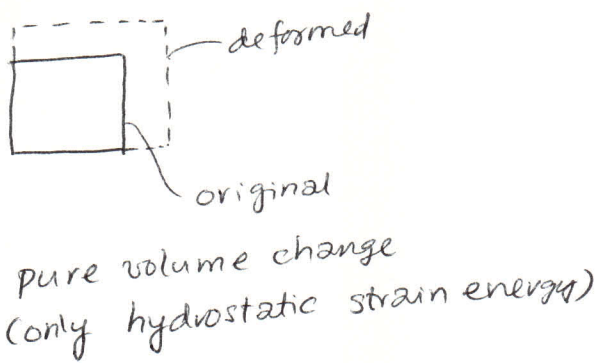 deformed
original
pure volume change
(only hydrostatic strain energy)